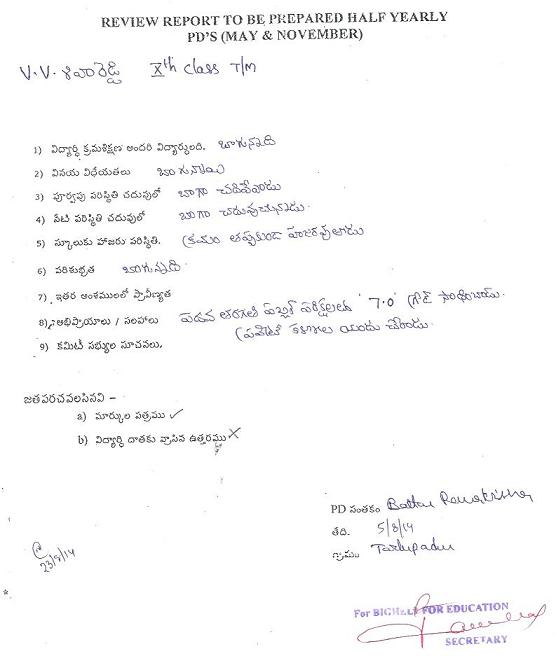 REVIEW REPORT TO BE PREPARED HALF YEARLY
PD'S (MAY & NOVEMBER)
V.V. శివారెడ్డి Xth class T/M
1) విద్యార్థి క్రమశిక్షణ అందరి విద్యార్థులది. బాగున్నది
2) వినయ విధేయతలు బాగున్నాయి
3) పూర్వపు పరిస్థితి చదువులో బాగా చదివేవాడు
4) నేటి పరిస్థితి చదువులో బాగా చదువుచున్నాడు.
5) స్కూలుకు హాజరు పరిస్థితి. క్రమం తప్పకుండా హాజరవుతాడు
6) పరిశుభ్రత బాగున్నది.
7) ఇతర అంశములలో ప్రావీణ్యత
8) అభిప్రాయాలు / సలహాలు పదవ తరగతి పబ్లిక్ పరీక్షలలో '7.0' గ్రేడ్ సాధించాడు.
ప్రైవేట్ కళాశాల యందు చేరాడు.
9) కమిటీ సభ్యుల సూచనలు.
జతపరచవలసినవి –
a) మార్కుల పత్రము ✓
b) విద్యార్థి దాతకు వ్రాసిన ఉత్తరము X
PD సంతకం Battu Ramakrishna
తేది. 5/8/14
గ్రామం Tarlupadu
23/8/14
For BIGHELP FOR EDUCATION
SECRETARY